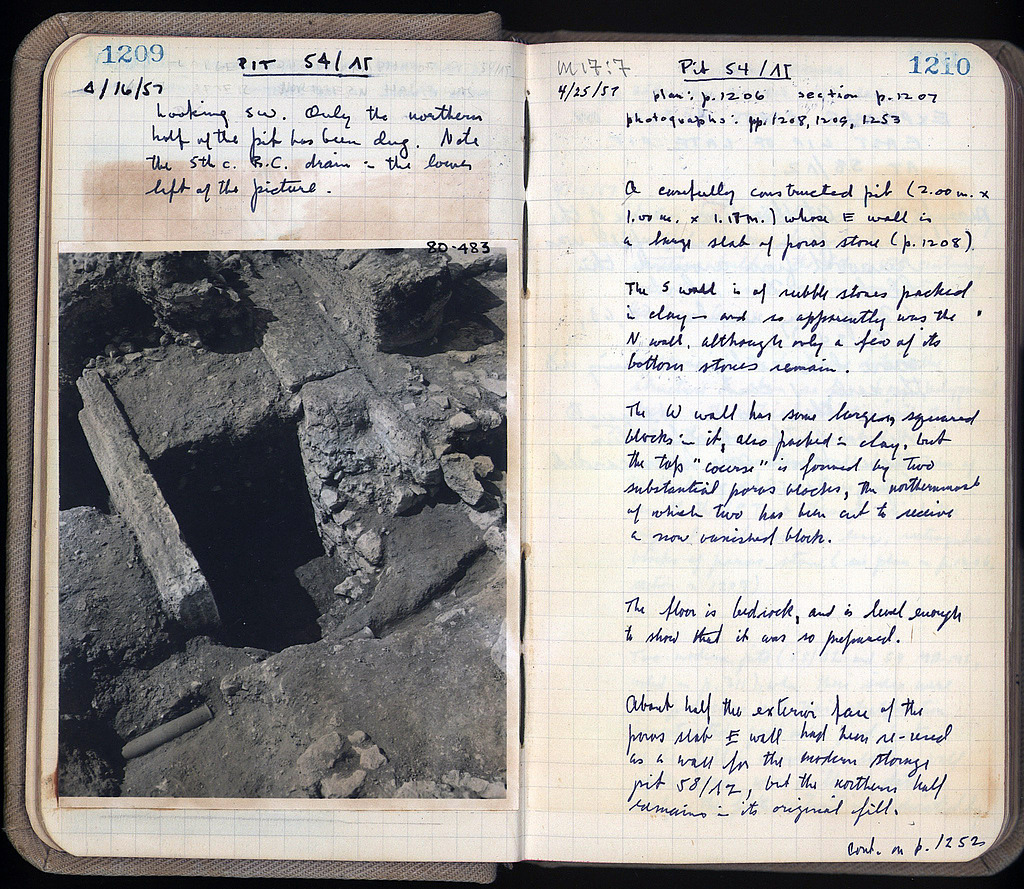 1209
PIT 54/15
4/16/57
Looking SW. Only the northern
half of the pit has been dug. Note
the 5th c. B.C. drain in the lower
left of the picture.
80-483
M17:7
Pit 54/15
1210
4/25/57
plan: p.1206 section p.1207
photographs: pp. 1208, 1209, 1253
A carefully constructed pit (2.00 m. x
1.00 m. x 1.18 m.) whose E wall is
a large slab of poros stone (p. 1208).
The S wall is of rubble stones packed
in clay - and so apparently was the
N wall, although only a few of its
bottom stones remain.
The W wall has some larger squared
blocks in it, also packed in clay, but
the top "course" is formed by two
substantial poros blocks, the northernmost
of which two has been cut to receive
a now vanished block.
The floor is bedrock, and is level enough
to show that it was so prepared.
About half the exterior face of the
poros slab E wall had been re-used
as a wall for the modern storage
pit 58/12, but the northern half
remains in its original fill.
cont. on p. 1252